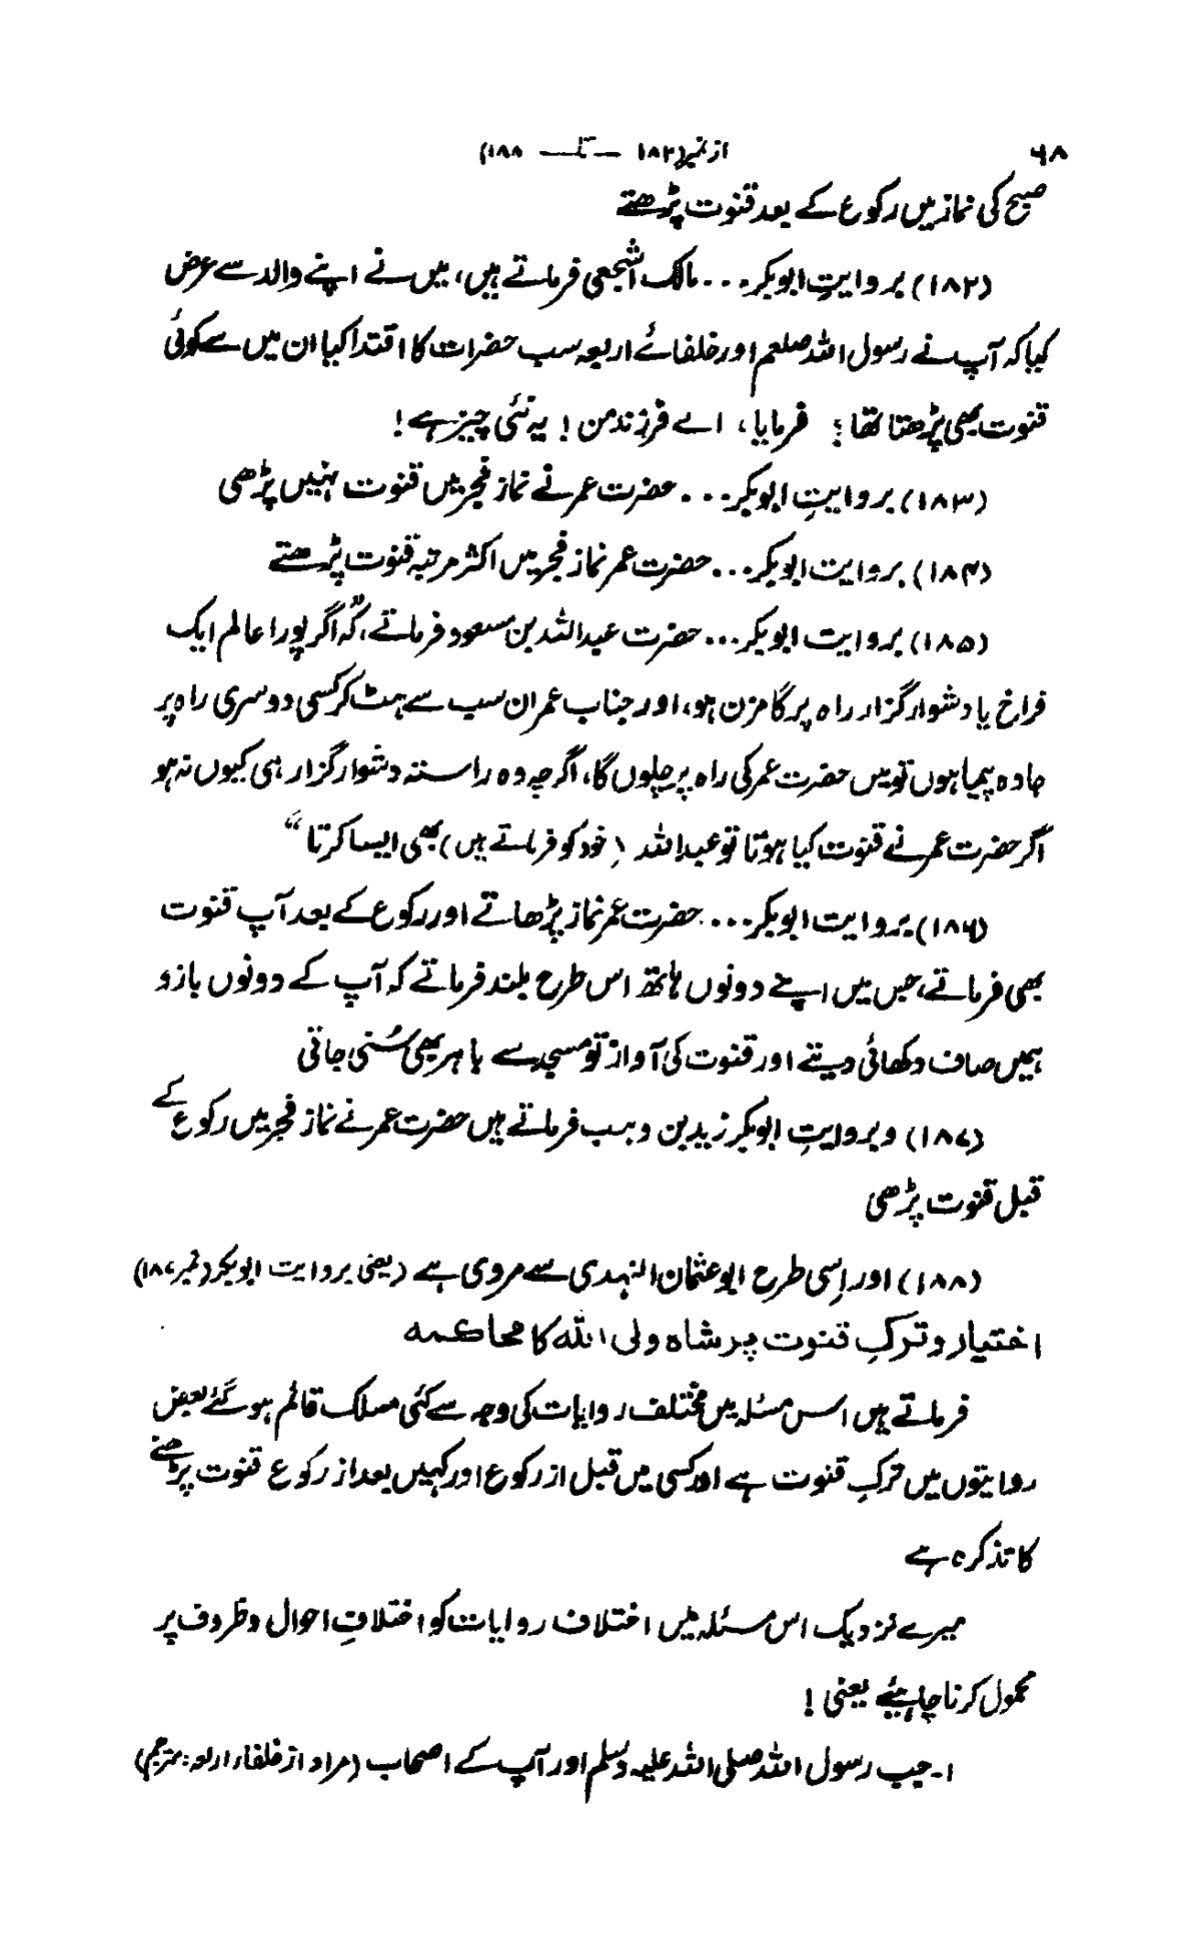 ۶۸ از نمبر(۱۸۲ — تا — ۱۸۸)
صبح کی نماز میں رکوع کے بعد قنوت پڑھتے
(۱۸۲) بروایتِ ابوبکر... مالک اشجعی فرماتے ہیں، میں نے اپنے والد سے عرض
کیا کہ آپ نے رسول اللہ صلعم اور خلفائے اربعہ سب حضرات کا اقتدا کیا ان میں سے کوئی
قنوت بھی پڑھتا تھا؟ فرمایا، اے فرزندِ من! یہ نئی چیز ہے!
(۱۸۳) بروایتِ ابوبکر... حضرت عمر نے نماز فجر میں قنوت نہیں پڑھی
(۱۸۴) بروایت ابوبکر... حضرت عمر نماز فجر میں اکثر مرتبہ قنوت پڑھتے
(۱۸۵) بروایت ابوبکر... حضرت عبداللہ بن مسعود فرماتے، "کہ اگر پورا عالم ایک
فراخ یا دشوار گزار راہ پر گامزن ہو، اور جناب عمر ان سب سے ہٹ کر کسی دوسری راہ پر
جادہ پیما ہوں تو میں حضرت عمر کی راہ پر چلوں گا، اگرچہ وہ راستہ دشوار گزار ہی کیوں نہ ہو
اگر حضرت عمر نے قنوت کیا ہوتا تو عبداللہ (خود کو فرماتے ہیں) بھی ایسا کرتا"
(۱۸۶) بروایت ابوبکر... حضرت عمر نماز پڑھاتے اور رکوع کے بعد آپ قنوت
بھی فرماتے، جس میں اپنے دونوں ہاتھ اس طرح بلند فرماتے کہ آپ کے دونوں بازو
ہمیں صاف دکھائی دیتے اور قنوت کی آواز تو مسجد سے باہر بھی سُنی جاتی
(۱۸۷) و بروایتِ ابوبکر زید بن وہب فرماتے ہیں حضرت عمر نے نماز فجر میں رکوع کے
قبل قنوت پڑھی
(۱۸۸) اور اِسی طرح ابو عثمان النہدی سے مروی ہے (یعنی بروایت ابوبکر (نمبر ۱۸۷)
اختیار و ترکِ قنوت پر شاہ ولی اللہ کا محاکمہ
فرماتے ہیں اس مسئلہ میں مختلف روایات کی وجہ سے کئی مسلک قائم ہو گئے بعض
روایتوں میں ترکِ قنوت ہے اور کسی میں قبل از رکوع اور کہیں بعد از رکوع قنوت پڑھنے
کا تذکرہ ہے
میرے نزدیک اس مسئلہ میں اختلاف روایات کو اختلافِ احوال و ظروف پر
محمول کرنا چاہیئے یعنی!
۱- جب رسول اللہ صلی اللہ علیہ وسلم اور آپ کے اصحاب (مراد از خلفاء اربعہ: مترجم)